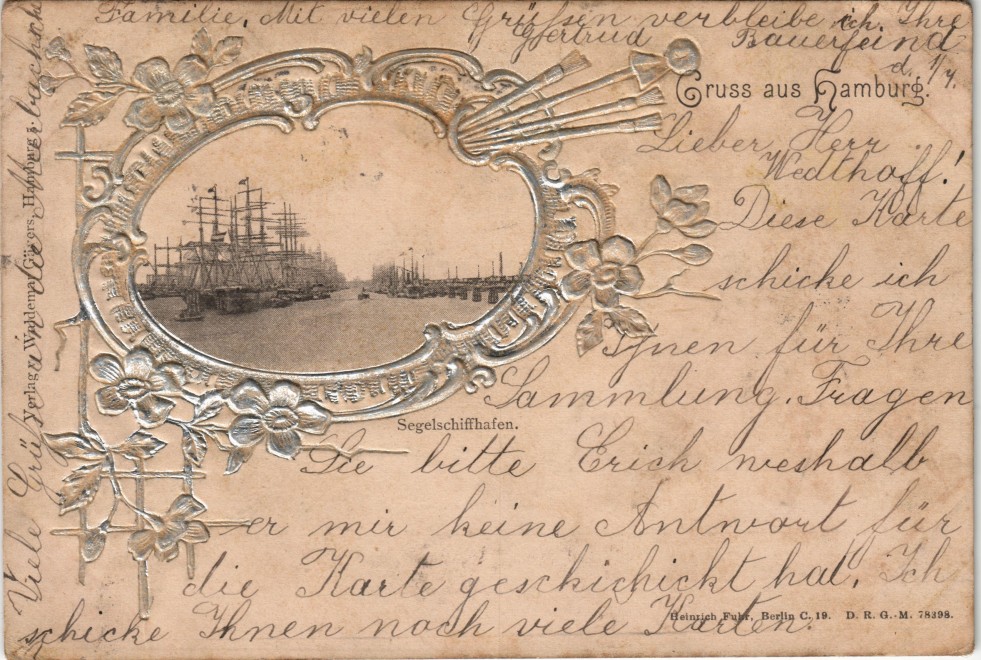 Gruss aus Hamburg.
d. 1/4.
Lieber Herr
Wedthoff!
Diese Karte
schicke ich
Ihnen für Ihre
Sammlung. Fragen
Sie bitte Erich weshalb
er mir keine Antwort für
die Karte geschickt hat. Ich
schicke Ihnen noch viele Karten.
Viele Grüße an
Familie. Mit vielen Grüßen verbleibe ich Ihre
Gertrud Bauerfeind
Segelschiffhafen.
Verlag v. Hamburg.
Heinrich Fuhr, Berlin C. 19. D. R. G.-M. 78398.